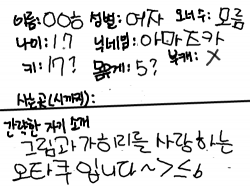 이름: OO흥 성별: 여자 오너수: 모름
나이: 1? 닉네임: 아마즈카
키: 17? 몸무게: 5? 복캐: X
사는곳(시까지):
간략한 자기 소개
그림과 가히리를 사랑하는
오타쿠 입니다~ >≤6